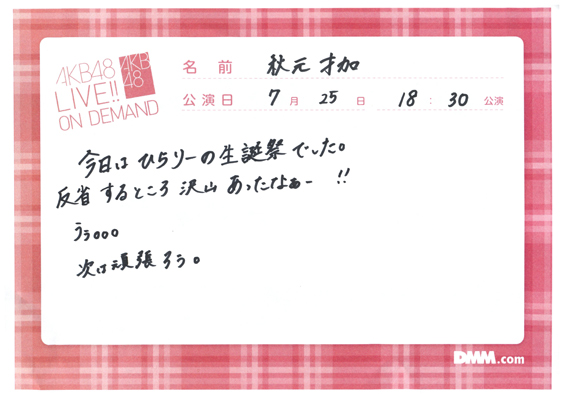 AKB48
LIVE!!
ON DEMAND
AKB
48
名 前 秋元 才加
公演日 7月 25日 18:30 公演
今日は ひらりーの生誕祭 でした。
反省 するところ 沢山 あったなぁー !!
うぅ。。。
次は頑張ろう。
DMM.com